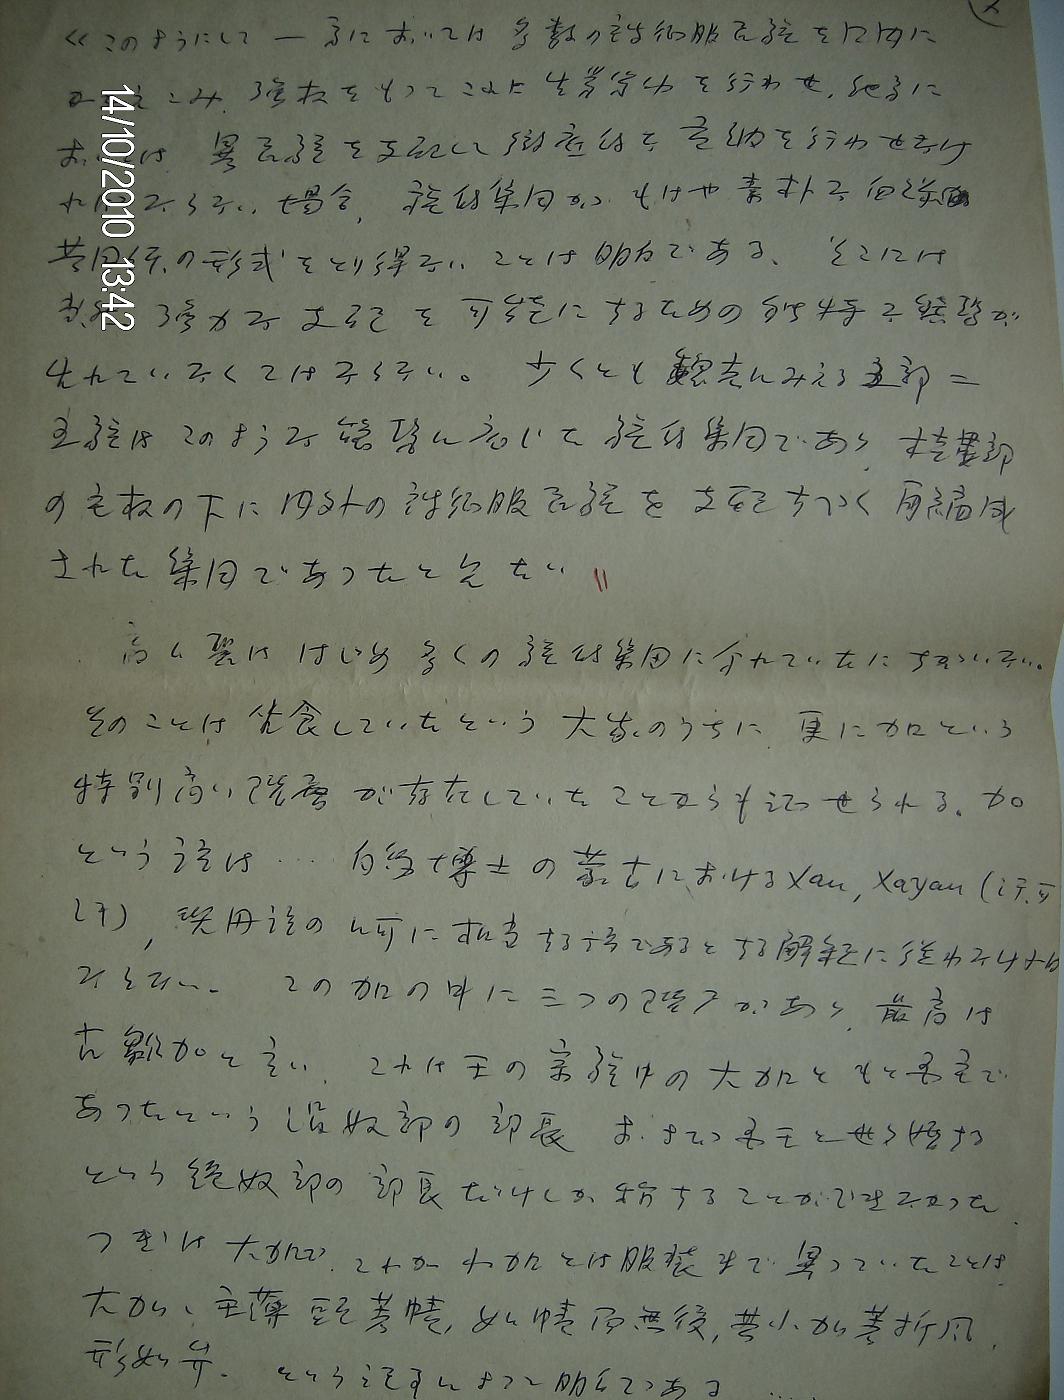 ≪このようにして一方においては多数の被征服民族を国内に
かゝえこみ、強权をもってこれに生产労仂を行わせ、他方に
おいては 異民族を支配し徹底的な を行わせなけ
ればならない場合、族的集団がもはや素朴な
共同体の形式をとり得ないことは明かである、そこには
強力な支配を可能にするための 態勢が
生れていなくてはならない。少くとも魏志にみえる五部=
五族はこのような態勢に応じた族的集団であり、桂婁部
の主权の下に内外の被征服民族を支配すべく再編成
された集団であったと見たい〃
高句麗ははじめ多くの族的集団に分れていたにちがいない。
そのことは坐食していたという大家のうちに、更に加という
特別高い階層が存在していたことからも 。加
という語は‥‥白鳥博士の蒙古におけるxan, xayan (
), 契丹語の に相当する語であるとする解釈に従わなければ
ならない。この加の中に三つの階 があり、最高は
古雛加と言い、これは王の宗族中の大加ともと国王で
あったという涓奴部の部長 および国王と する
という絶奴部の部長だけしか称することができなかった、
つぎは大加で、これが小加とは服装まで異っていたことは、
大加、主簿頭著幘, 如幘而無後, 其小加著折風,
形如弁. という記事によって明らかである
14/10/2010 13:42